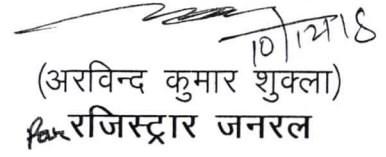 (अरविन्द कुमार शुक्ला)
For रजिस्ट्रार जनरल